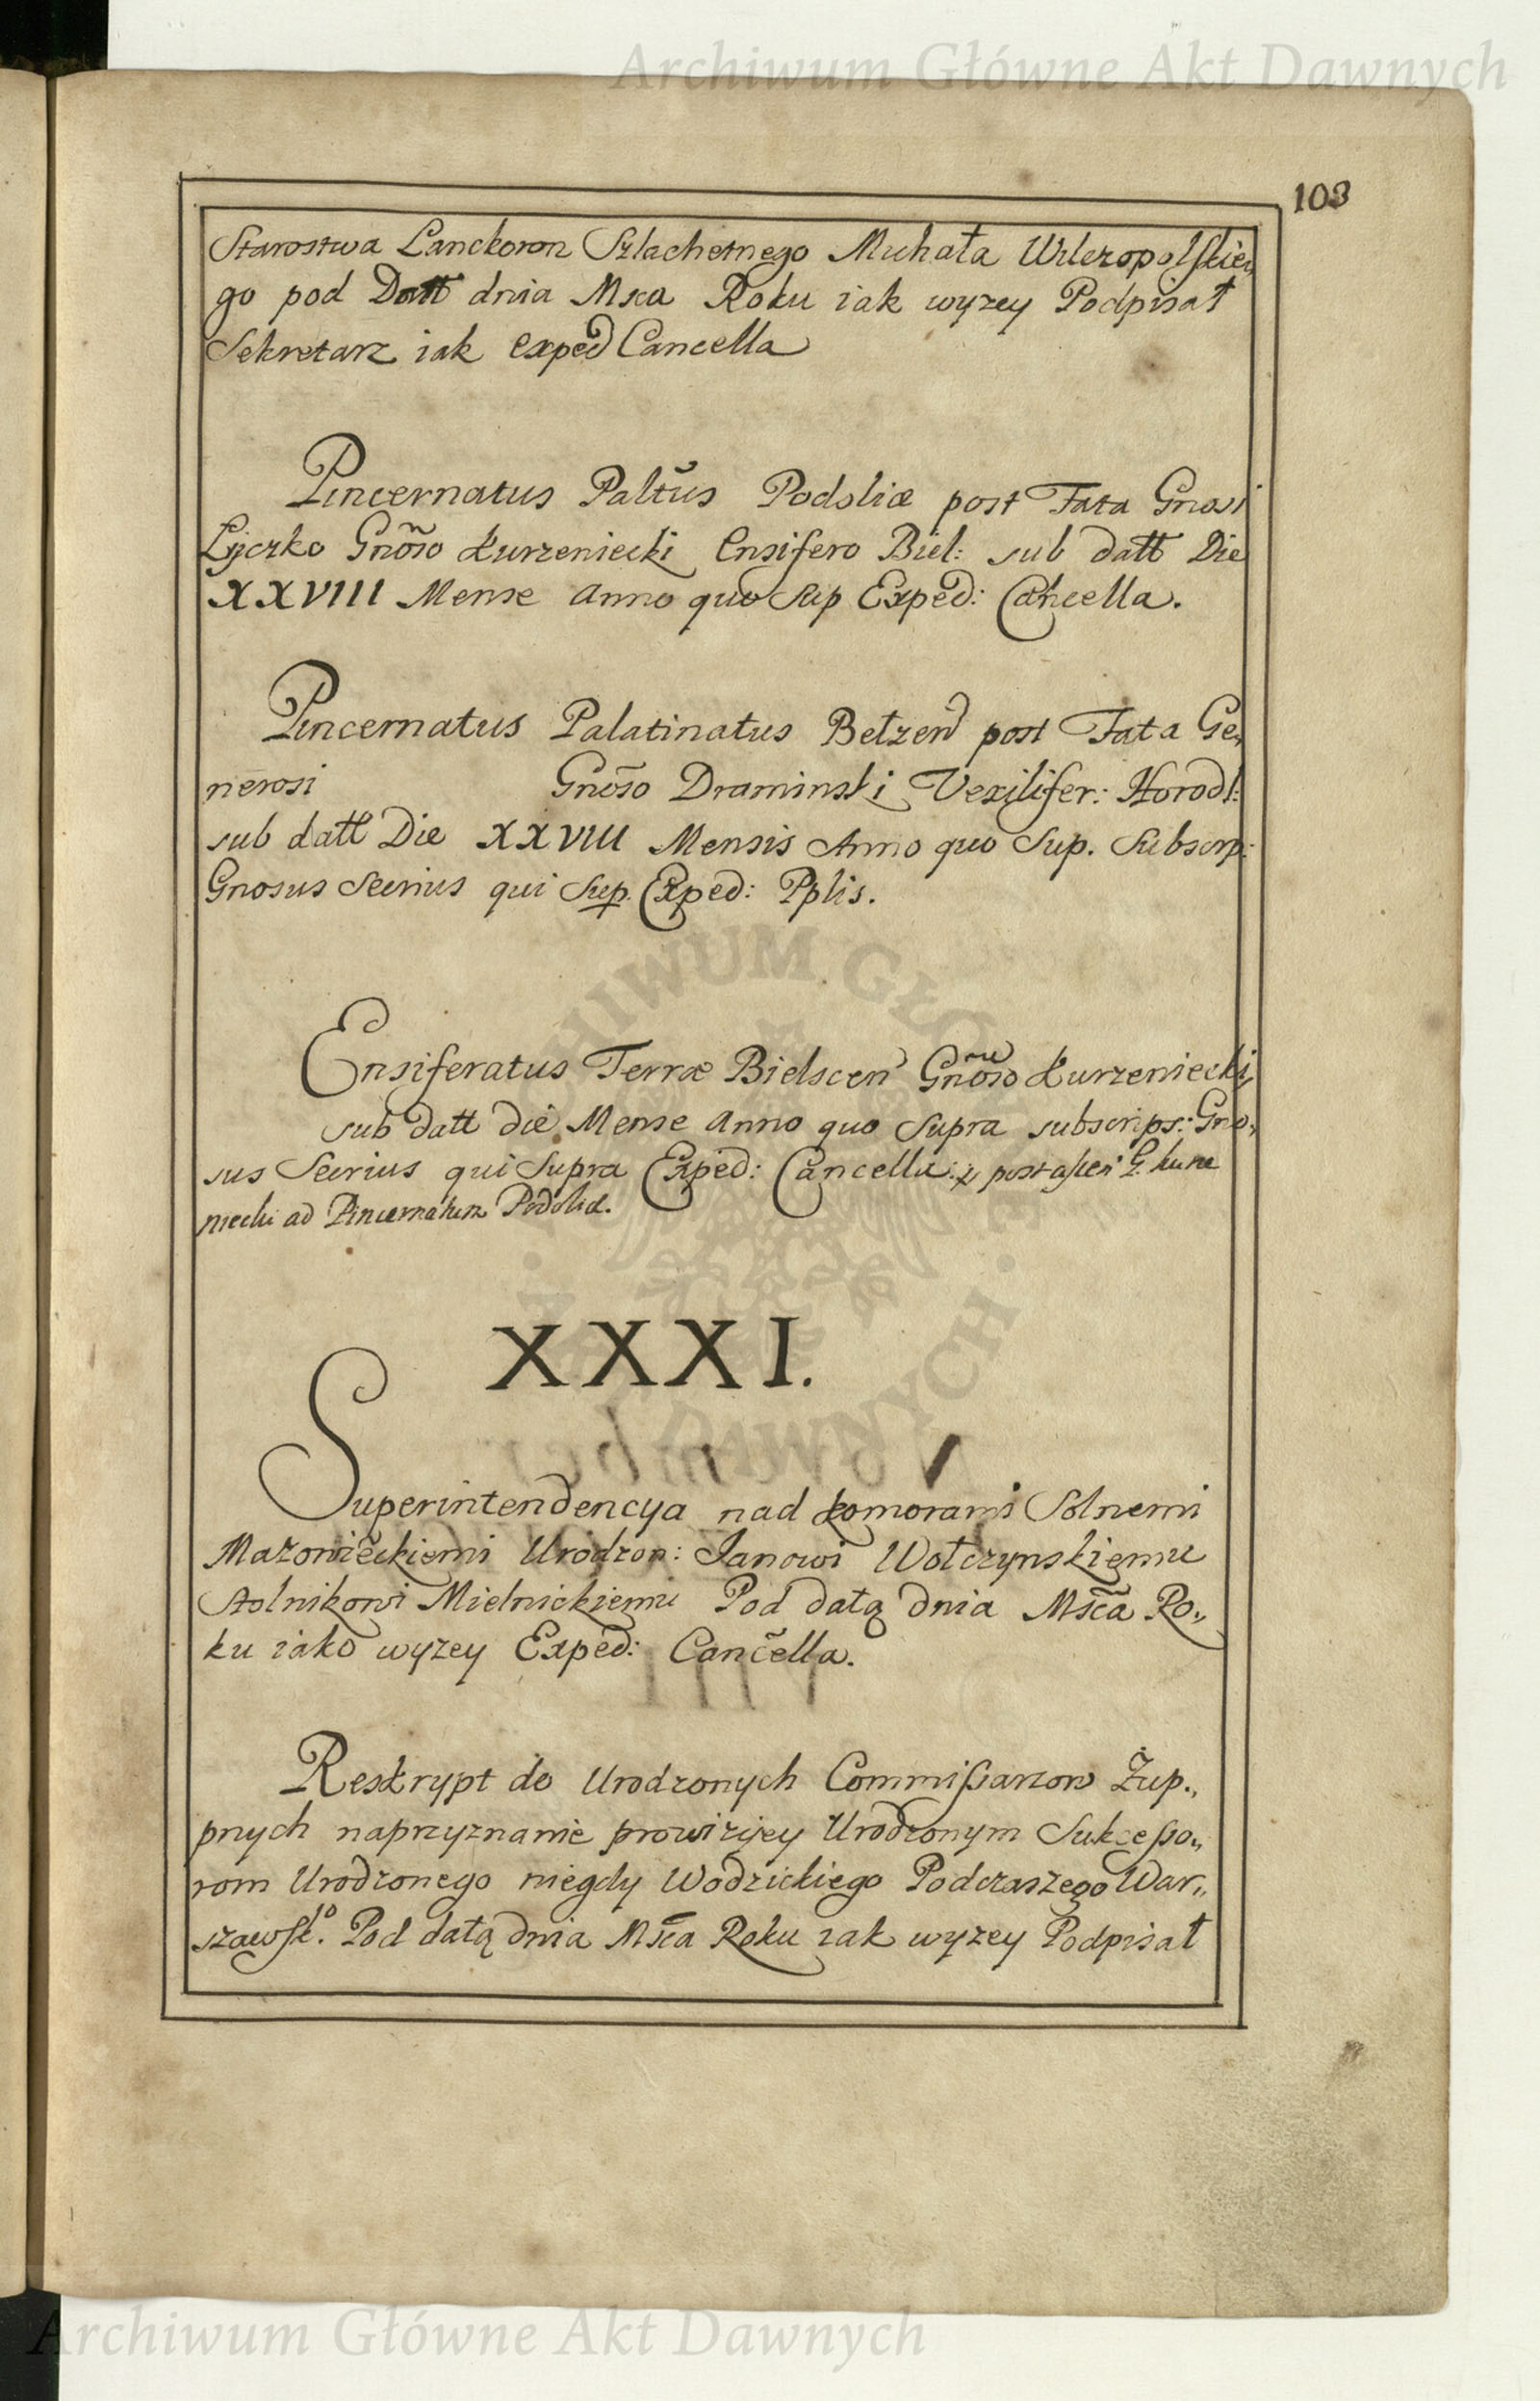 Archiwum Główne Akt Dawnych
103
Starostwa Lanckoron Szlachetnego Michała Wilczopolskie,,
go pod Datt dnia Msca Roku iak wyzey Podpisał
Sekretarz iak exped Cancella
Pincernatus Paltũs Podoliæ post Fata Gnosi
Lyczko Gnõso Kurzeniecki Ensifero Biel: sub datt Die
XXVIII Mense Anno quo Sup Exped: Cancella.
Pincernatus Palatinatus Betzen post Fata Ge,,
nerosi Gnõso Draminski Vexilifer: Horodl:
sub datt Die XXVIII Mensis Anno quo Sup. Subscrp:
Gnosus Secrius qui Sup. Exped: Pplis.
Ensiferatus Terræ Bielscen Gnõso Kurzeniecki,
sub datt die Mense Anno quo Supra subscrips: Gno,,
sus Secrius qui Supra Exped: Cancella: post G. Kurze
niecki ad Pincernatum Podoliæ.
XXXI.
Superintendencya nad komorami Solnemi
Mazowieckiemi Urodzon: Janowi Wołczynskiemu
Stolnikowi Mielnickiemu Pod datą dnia Msca Ro,,
ku iako wyzey Exped: Cancella.
Reskrypt do Urodzonych Commißarzow Żup,,
pnych naprzyznanie prowizyey Urodzonym Sukceßo,,
rom Urodzonego niegdy Wodzickiego Podczaszego War,,
szawsko. Pod datą dnia Msca Roku iak wyzey Podpisał
Archiwum Główne Akt Dawnych